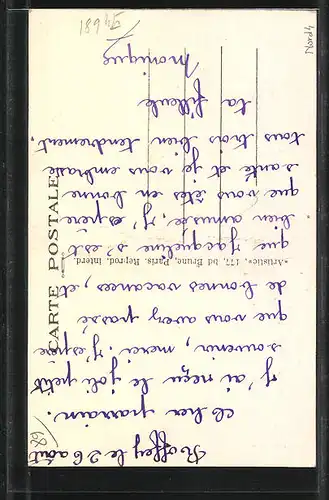 Roffey le 26 août
Cher parrain.
J'ai reçu le joli petit
souvenir, merci. J'espère
que vous avez passé
de bonnes vacances, et
que Jacqueline s'est
bien amusée. J'espère
que vous êtes en bonne
santé et je vous embrasse
tous trois bien tendrement
ta filleule
Monique
CARTE POSTALE
«Artistic», 177, bd Brune, Paris. Reprod. Interd.
Nord4